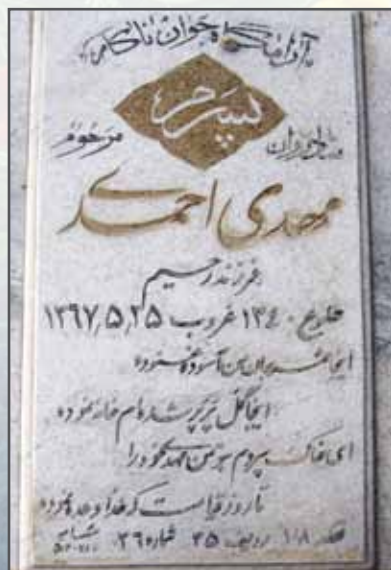 آرامگاه جوان ناکام
پسرم
شادروان
مرحوم
مهدی احمدی
فرزند رحیم
طلوع ۱۳۴۰ غروب ۱۳۶۷٫۵٫۲۵
اینجا من آسوده غنوده
اینجا گل پرپر شده‌ام خانه نموده
ای خاک سپردم بتو من مهدی خود را
تا روز قیامت که خدا وعده نموده
قطعه ۱۰۸ ردیف ۳۵ شماره ۳۹